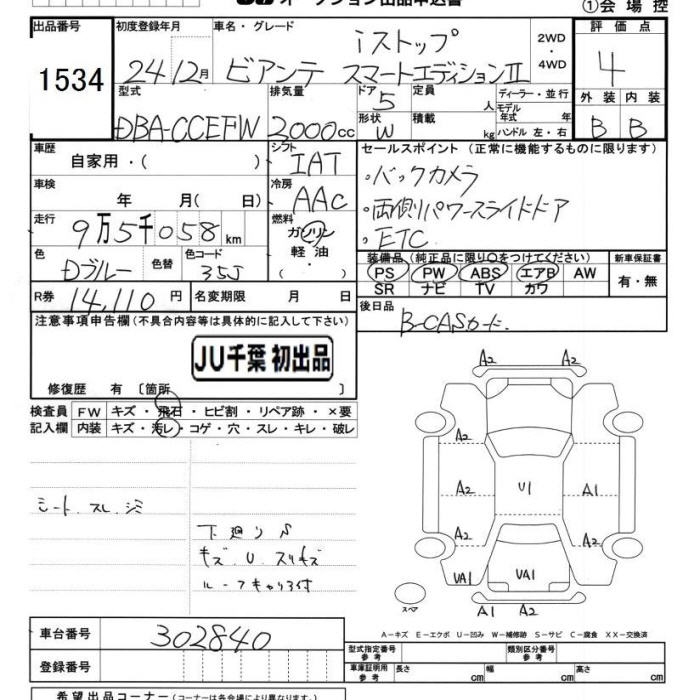 オークション出品申込書
①会場控
出品番号 1534
初度登録年月 24 12月
車名・グレード iストップ
ビアンテ スマートエディションⅡ
2WD ・ 4WD
評価点 4
外装 B 内装 B
型式 DBA-CCEFW
排気量 2000cc
ドア 5 形状 W
定員 人
積載 kg
ディーラー・並行
モデル年式 年
ハンドル 左・右
車歴 自家用・( )
シフト IAT
セールスポイント (正常に機能するものに限ります)
・バックカメラ
・両側パワースライドドア
・ETC
車検 年 月( 日)
冷房 AAC
走行 9万5千058km
燃料 ガソリン 軽油 ・( )
色 Dブルー 色替 色コード 35J
装備品 (純正品に限り○をつけてください)
PS PW ABS エアB AW
SR ナビ TV カワ
新車保証書 有・無
R券 14,110円 名変期限 月 日
後日品 B-CASカード.
注意事項申告欄 (不具合内容等は具体的に記入して下さい)
JU千葉 初出品
修復歴 有 〔箇所 〕
検査員 FW キズ・飛石・ヒビ割・リペア跡・×要
記入欄 内装 キズ・汚レ・コゲ・穴・スレ・キレ・破レ
シート.スレ.シミ
下廻りS
キズ.U.スリキズ
ルーフキャリア付
A2 A2
A2
A2 U1 A1
A2 A2
UA1 UA1
スペア A1 A2
A-キズ E-エクボ U-凹み W-補修跡 S-サビ C-腐食 XX-交換済
車台番号 302840
登録番号
型式指定番号 参考
類別区分番号 参考
車庫証明用 参考 長さ cm 幅 cm 高さ cm
希望出品コーナー (コーナーは各会場により異なります)